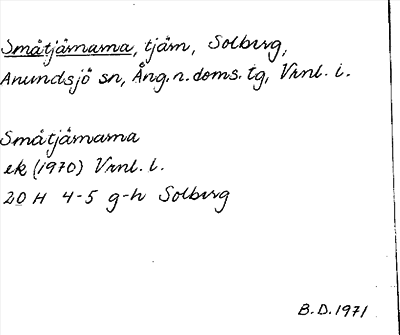 Småtjärnarna, tjärn, Solberg,
Anundsjö sn, Ång. n. doms. tg, Vrnl. l.
Småtjärnarna
ek (1970) Vrnl. l.
20 H 4-5 g-h Solberg
B.D. 1971